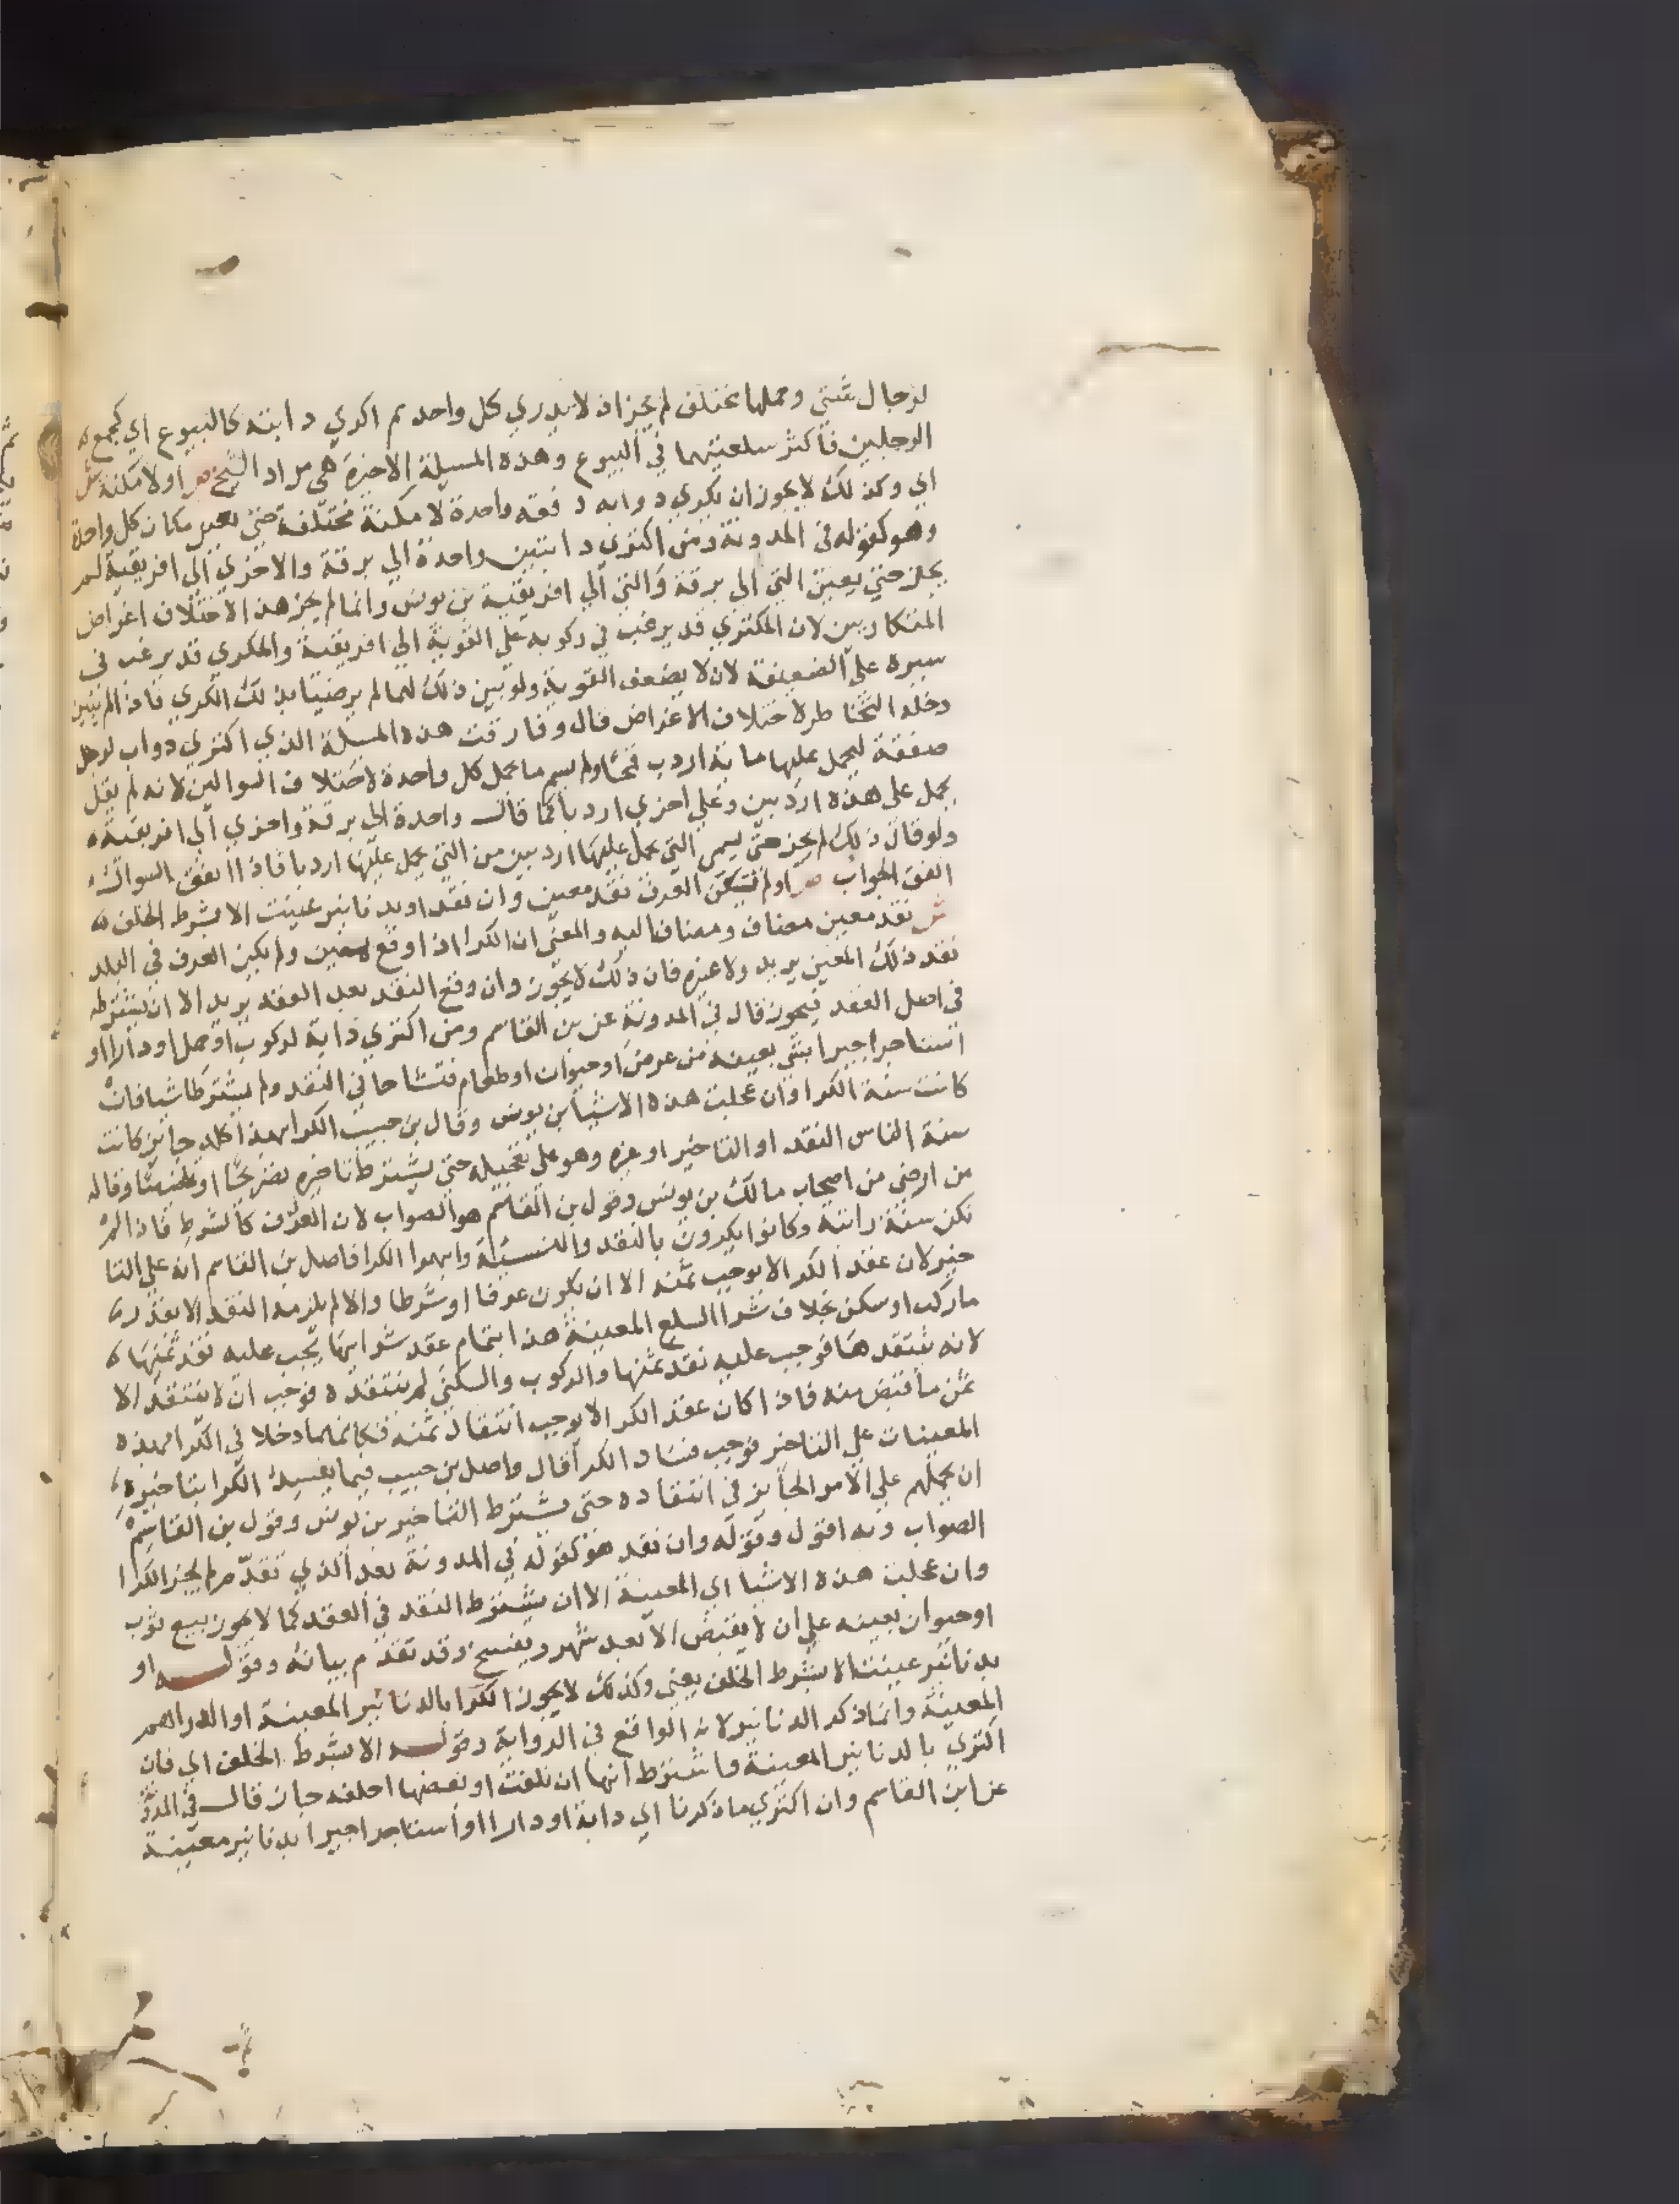 لرجال شتي وحملها مختلف لم يجز اذ لا يدري كل واحد بم اكري دابته كالبيوع اي كجمع
الرجلين فاكثر سلعتيهما في البيوع وهذه المسيلة الاخيرة هي مراد الشيخ ص او لامكنة ش
اي وكذلك لا يجوز ان يكري دوابه دفعة واحدة لامكنة مختلفة حتي يعين مكان كل واحدة
وهو كقوله في المدونة ومن اكتري دابتين واحدة الي برقة والاخري الي افريقية لم
يجز حتي يعين التي الي برقة والتي الي افريقية بن يونس وانما لم يجز هذا لاختلاف اغراض
المتكاريين لان المكتري قد يرغب في ركوبه علي القوية الي افريقية والمكري قد يرغب في
سيره علي الضعيفة لان لا يضعف القوية ولو بين ذلك لهما لم يرضيا بذلك الكري فاذا لم يتبين
دخله التخاطر لاختلاف الاغراض قال وفارقت هذه المسيلة الذي اكتري دواب لرجل
صفقة ليحمل عليها ماية اردب قمحا ولم يسم ما يحمل كل واحدة لاختلاف السوالين لانه لم يقل
يحمل علي هذه اردبين وعلي اخري اردبا كما قال واحدة الي برقة واخري الي افريقية
ولو قال ذلك لم يجز حتي يسمي التي يحمل عليها اردبين من التي يحمل عليها اردبا فاذا اتفق السوال
اتفق الجواب ص او لم يكن العرف نقد معين وان نقد او بدنانير عينت الا بشرط الخلف
ش نقد معين مضاف ومضاف اليه والمعني ان الكرا اذا وقع بمعين ولم يكن العرف في البلد
نقد ذلك المعين يريد ولا غيره فان ذلك لا يجوز وان وقع النقد بعد العقد يريد الا ان يشترطه
في اصل العقد فيجوز قال في المدونة عن بن القاسم ومن اكتري دابة لركوب او حمل او دارا او
استاجر اجيرا بشي بعينه من عرض او حيوان او طعام فتشاحا في النقد ولم يشترطا شيا فان
كانت سنة الكرا وان عجلت هذه الاشيا بن يونس وقال بن حبيب الكرا بهذا كله جايز كانت
سنة الناس النقد او التاخير او غيره وهو علي تعجيله حتي يشترط تاخيره تصريحا او تضمينا وقاله
من ارضي من اصحاب مالك بن يونس وقول بن القاسم هو الصواب لان العرف كالشرط فاذا لم
تكن سنة راتبة وكانوا يكرون بالنقد والنسيئة وابهموا الكرا فاصل بن القاسم انه علي التا
خير لان عقد الكرا لا يوجب ثمنه الا ان يكون عرفا او شرطا والا لم يلزمه النقد الا بقدر
ما ركب او سكن بخلاف شرا السلع المعينة هذا بتمام عقد شرايها يجب عليه نقد ثمنها
لانه ينتقدها فوجب عليه نقد ثمنها والركوب والسكني لم ينتقده فوجب ان لا ينتقد الا
ثمن ما قبض منه فاذا كان عقد الكرا لا يوجب انتقاد ثمنه فكانهما دخلا في الكرا بهذه
المعينات علي التاخير فوجب فساد الكرا قال واصل بن حبيب فيما يفسد الكرا بتاخيره
ان يحملهم علي الامر الجايز في انتقاده حتي يشترط التاخير بن يونس وقول بن القاسم
الصواب وبه اقول وقوله وان نقد هو كقوله في المدونة بعد الذي تقدم لم يجز الكرا
وان عجلت هذه الاشيا اي المعينة الا ان يشترط النقد في العقد كما لا يجوز بيع ثوب
او حيوان بعينه علي ان لا يقبض الا بعد شهر ويفسخ وقد تقدم بيانه وقوله او
بدنانير عينت الا بشرط الخلف يعني وكذلك لا يجوز الكرا بالدنانير المعينة او الدراهم
المعينة وانما ذكر الدنانير لانه الواقع في الرواية وقوله الا بشرط الخلف اي فان
اكتري بالدنانير المعينة واشترط انها ان تلفت او بعضها اخلفه جاز قال في المد
عن ابن القاسم وان اكتري ما ذكرنا اي دابة او دارا او استاجر اجيرا بدنانير معينة